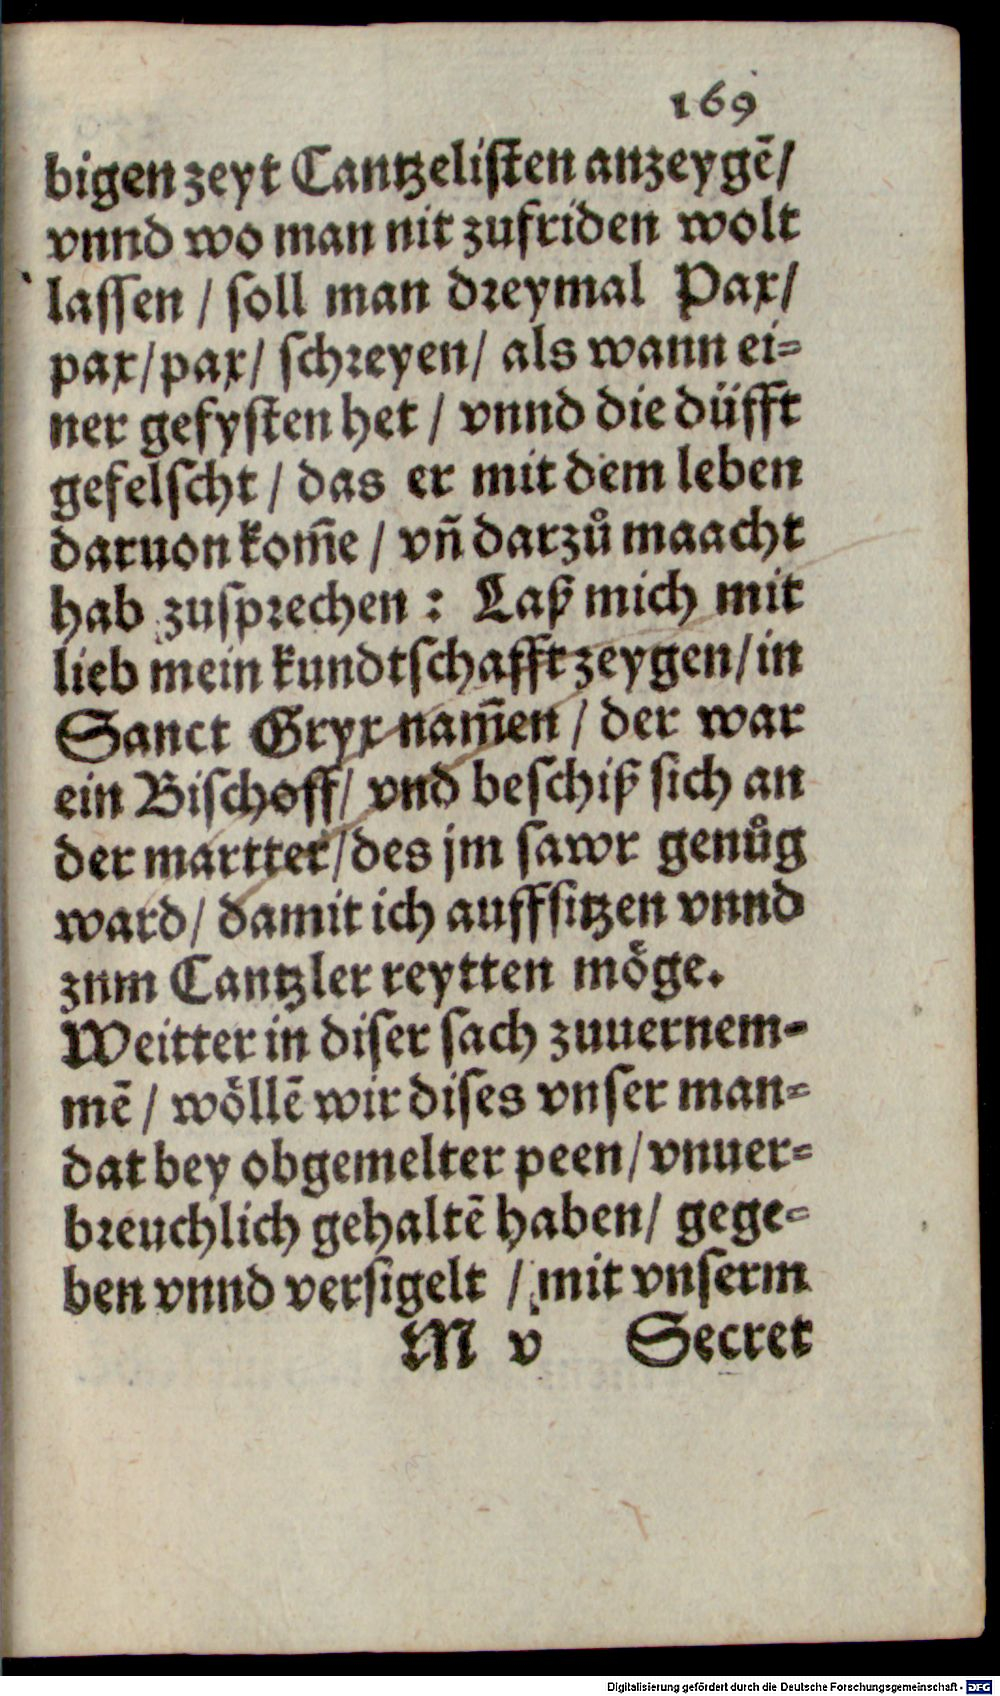 169
bigen zeyt Cantzelisten anzeygē/
vnnd wo man nit zufriden wolt
lassen / soll man dreymal Pax/
pax/pax/ schreyen/ als wann ei=
ner gefysten het / vnnd die düfft
gefelscht / das er mit dem leben
daruon kom̄e / vn̄ darzů maacht
hab zusprechen : Laß mich mit
lieb mein kundtschafft zeygen/in
Sanct Gryx nam̄en / der war
ein Bischoff/ vnd beschiß sich an
der martter/des jm sawr genůg
ward/ damit ich auffsitzen vnnd
znm Cantzler reytten möge.
Weitter in diser sach zuuernem=
mē / wöllē wir dises vnser man=
dat bey obgemelter peen/vnuer=
breuchlich gehaltē haben/ gege=
ben vnnd versigelt / mit vnserm
M v Secret
Digitalisierung gefördert durch die Deutsche Forschungsgemeinschaft - DFG